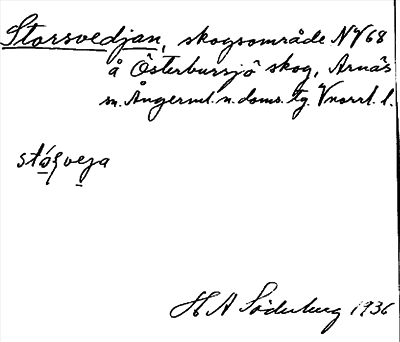 Storsvedjan, skogsområde NV 68
å Österbursjö skog, Arnäs
sn. Ångerml. n. doms. tg. Vnorrl. l.
stó̱ʂve̱ja
H A Söderberg 1936